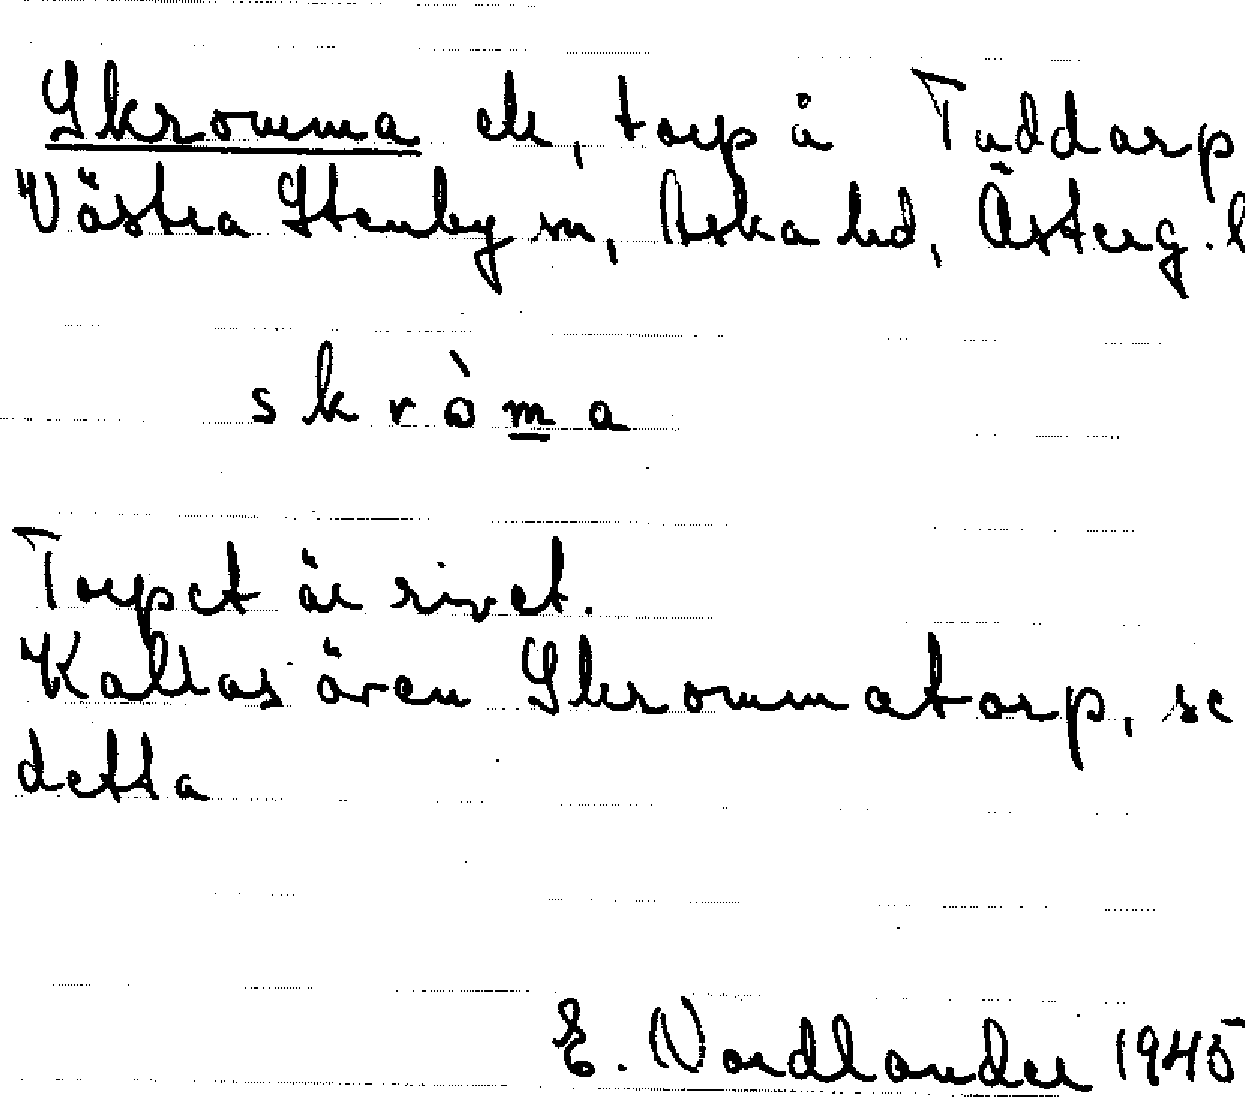 Skromma ele, torp å Tuddarp
Västra Stenby sn, Aska hd, Österg. l
skròm̲a
Torpet är rivet.
Kallas även Skrommatorp, se
detta
E. Nordlander 1945